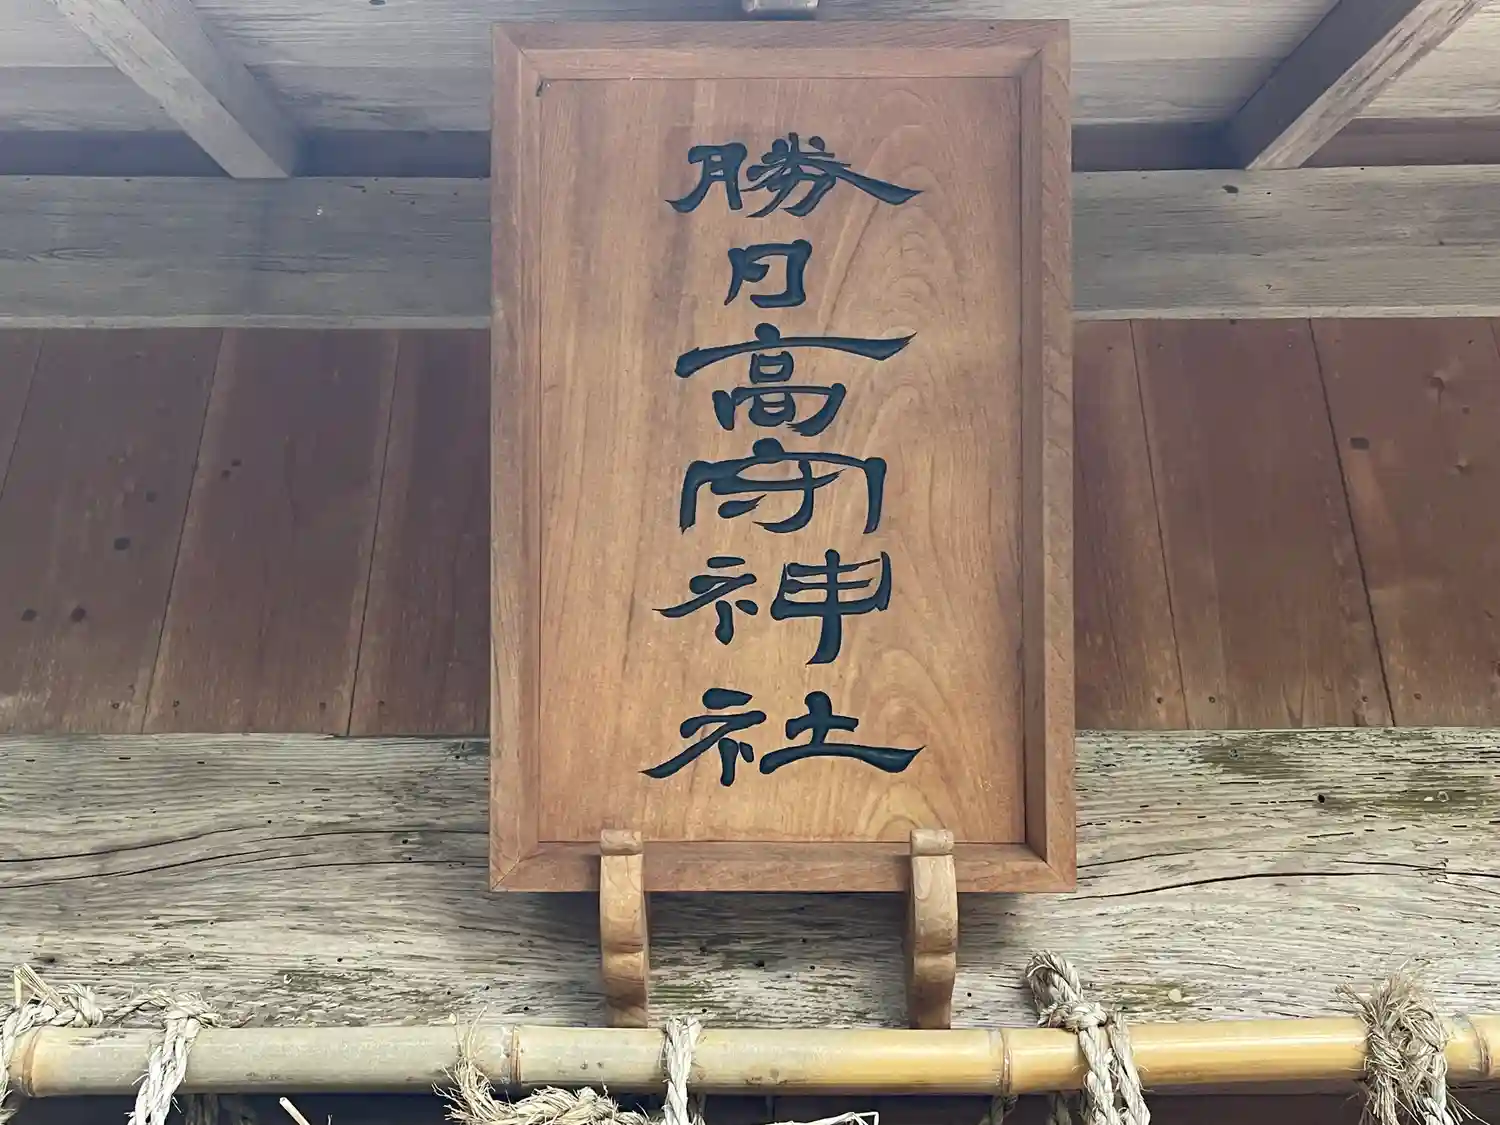 勝日高守神社